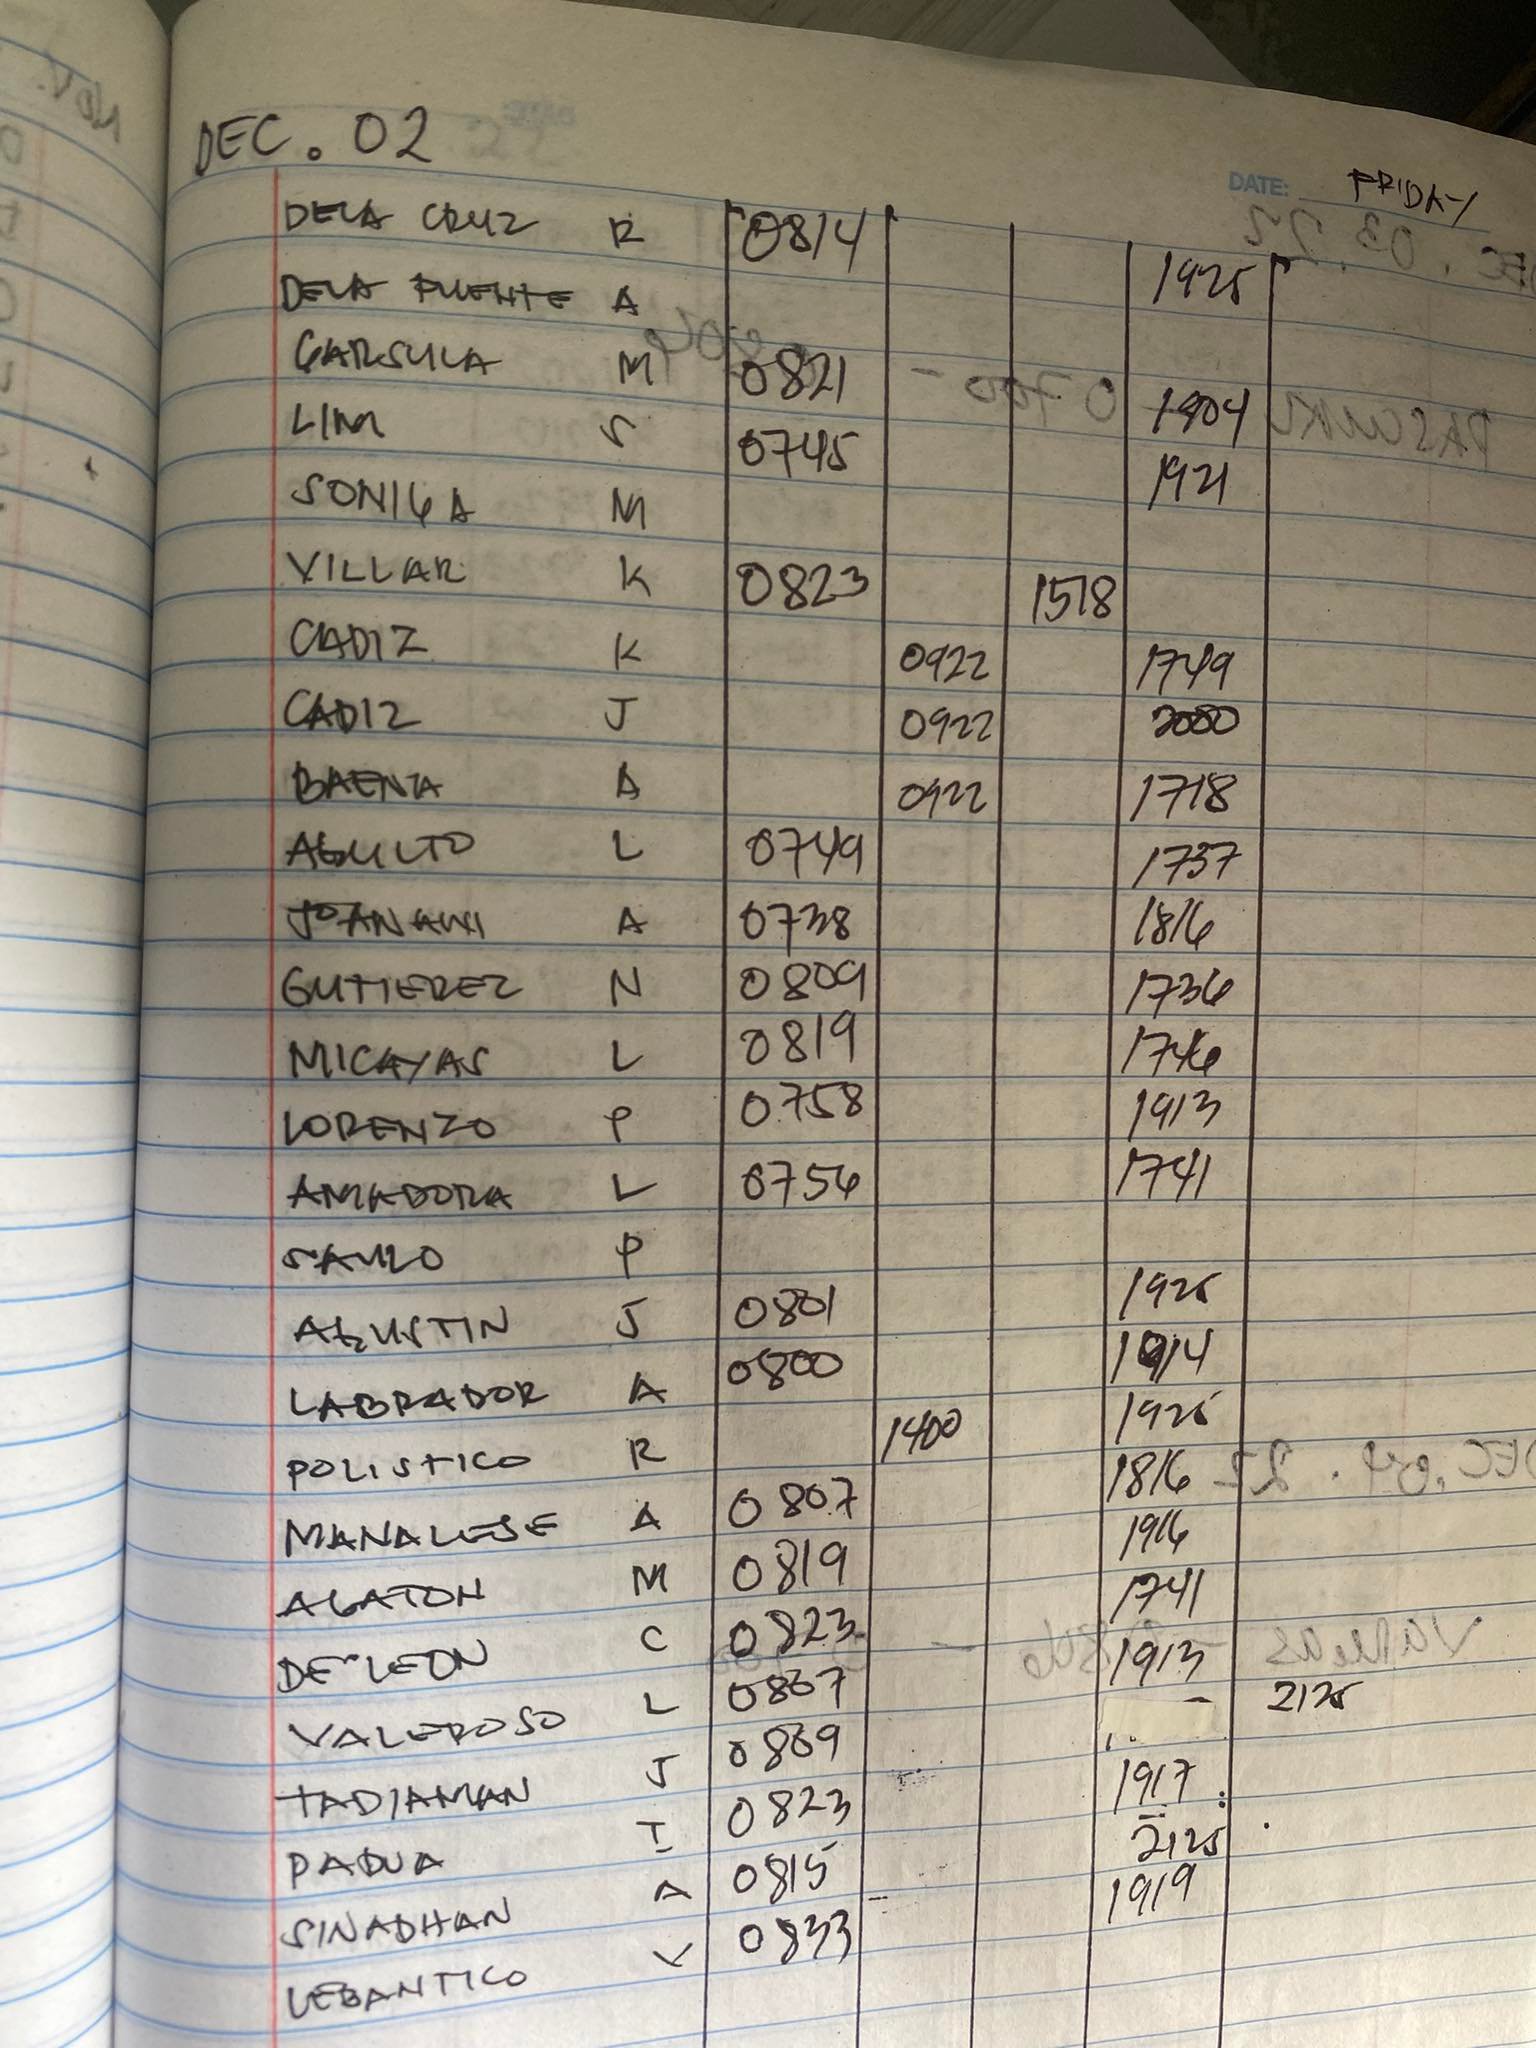 DEC. 02
DATE: FRIDAY
DELA CRUZ R 0814 1925
DELA PUENTE A
GARSULA M 0821 1904
LIM S 0745 1921
SONIGA M
VILLAR K 0823 1518
CADIZ K 0922 1749
CADIZ J 0922 2000
A 0922 1718
AGULTO L 0749 1737
A 0738 1816
GUTIEREZ N 0809 1736
MICAYAS L 0819 1746
LORENZO P 0758 1913
AMADORA L 0756 1741
SAULO P
AGUSTIN J 0801 1925
LABRADOR A 0800 1914
POLISTICO R 1400 1925
MANALESE A 0807 1816
AGATON M 0819 1916
DE LEON C 0823 1741
VALEROSO L 0807 1913
TADIAMAN J 0809 2125
PADUA I 0823 1917
SINADHAN A 0815 2125
LEBANTICO V 0833 1919